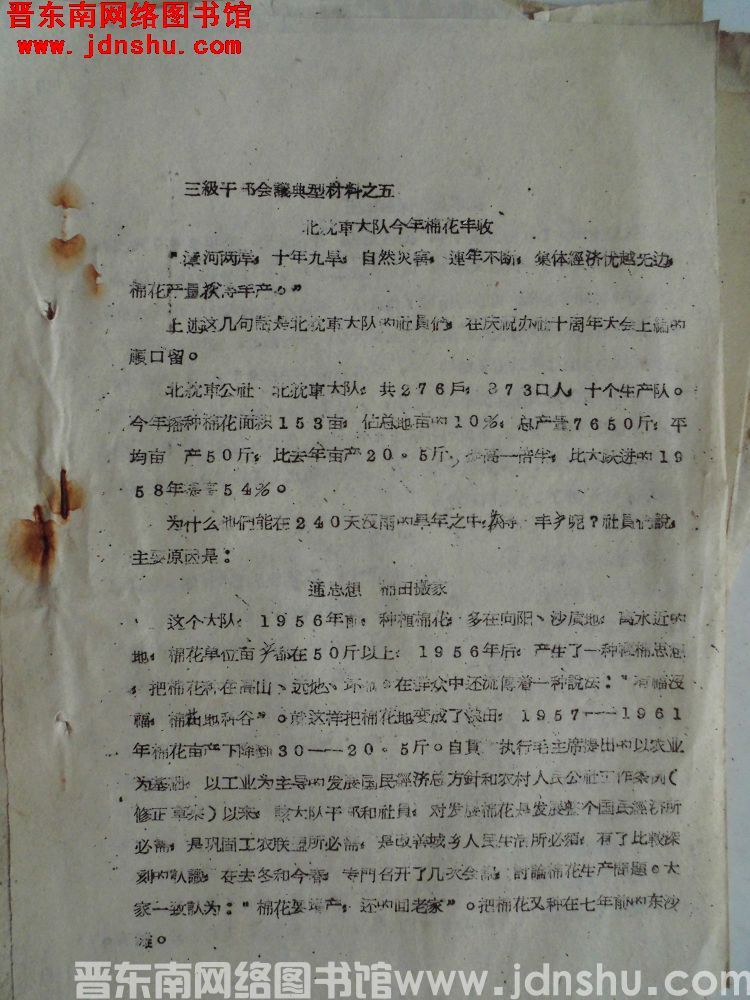 晋东南网络图书馆
www.jdnshu.com
三級干部会議典型材料之五
北 大队今年棉花丰收
“ 河两岸，十年九旱，自然灾害，連年不断，集体經济优越无边，
棉花产量获得丰产。”
上述这几句話是北 大队的社員們，在庆祝办社十周年大会上編的
順口留。
北 公社 北 大队，共276戶，873口人，十个生产队。
今年播种棉花面积153亩，佔总地亩的10%，总产量7650斤，平
均亩 产50斤，比去年亩产20。5斤， 高一倍半，比大跃进的19
58年 54%。
为什么他們能在240天沒雨的旱年之中，获得 丰产呢？社員們說，
主要原因是：
通思想 棉田搬家
这个大队，1956年前，种植棉花，多在向阳、沙质地，离水近的
地，棉花单位亩产都在50斤以上，1956年后，产生了一种 棉思想
，把棉花种在高山、远地、坏地。在群众中还流傳着一种說法：“有福沒
福，棉花地种谷”。就这样把棉花地变成了谷田，1957——1961
年棉花亩产下降到30——20。5斤。自貫 执行毛主席提出的以农业
为基础，以工业为主导的发展国民經济总方針和农村人民公社工作条例（
修正草案）以来，該大队干部和社員，对发展棉花是发展整个国民經济所
必需，是巩固工农联盟所必需，是改善城乡人民生活所必須，有了比較深
刻的认識，在去冬和今春，专門召开了几次会議，討論棉花生产問題。大
家一致认为：“棉花要增产，还的回老家”。把棉花又种在七年前的东沙
滩。
晋东南网络图书馆www.jdnshu.com